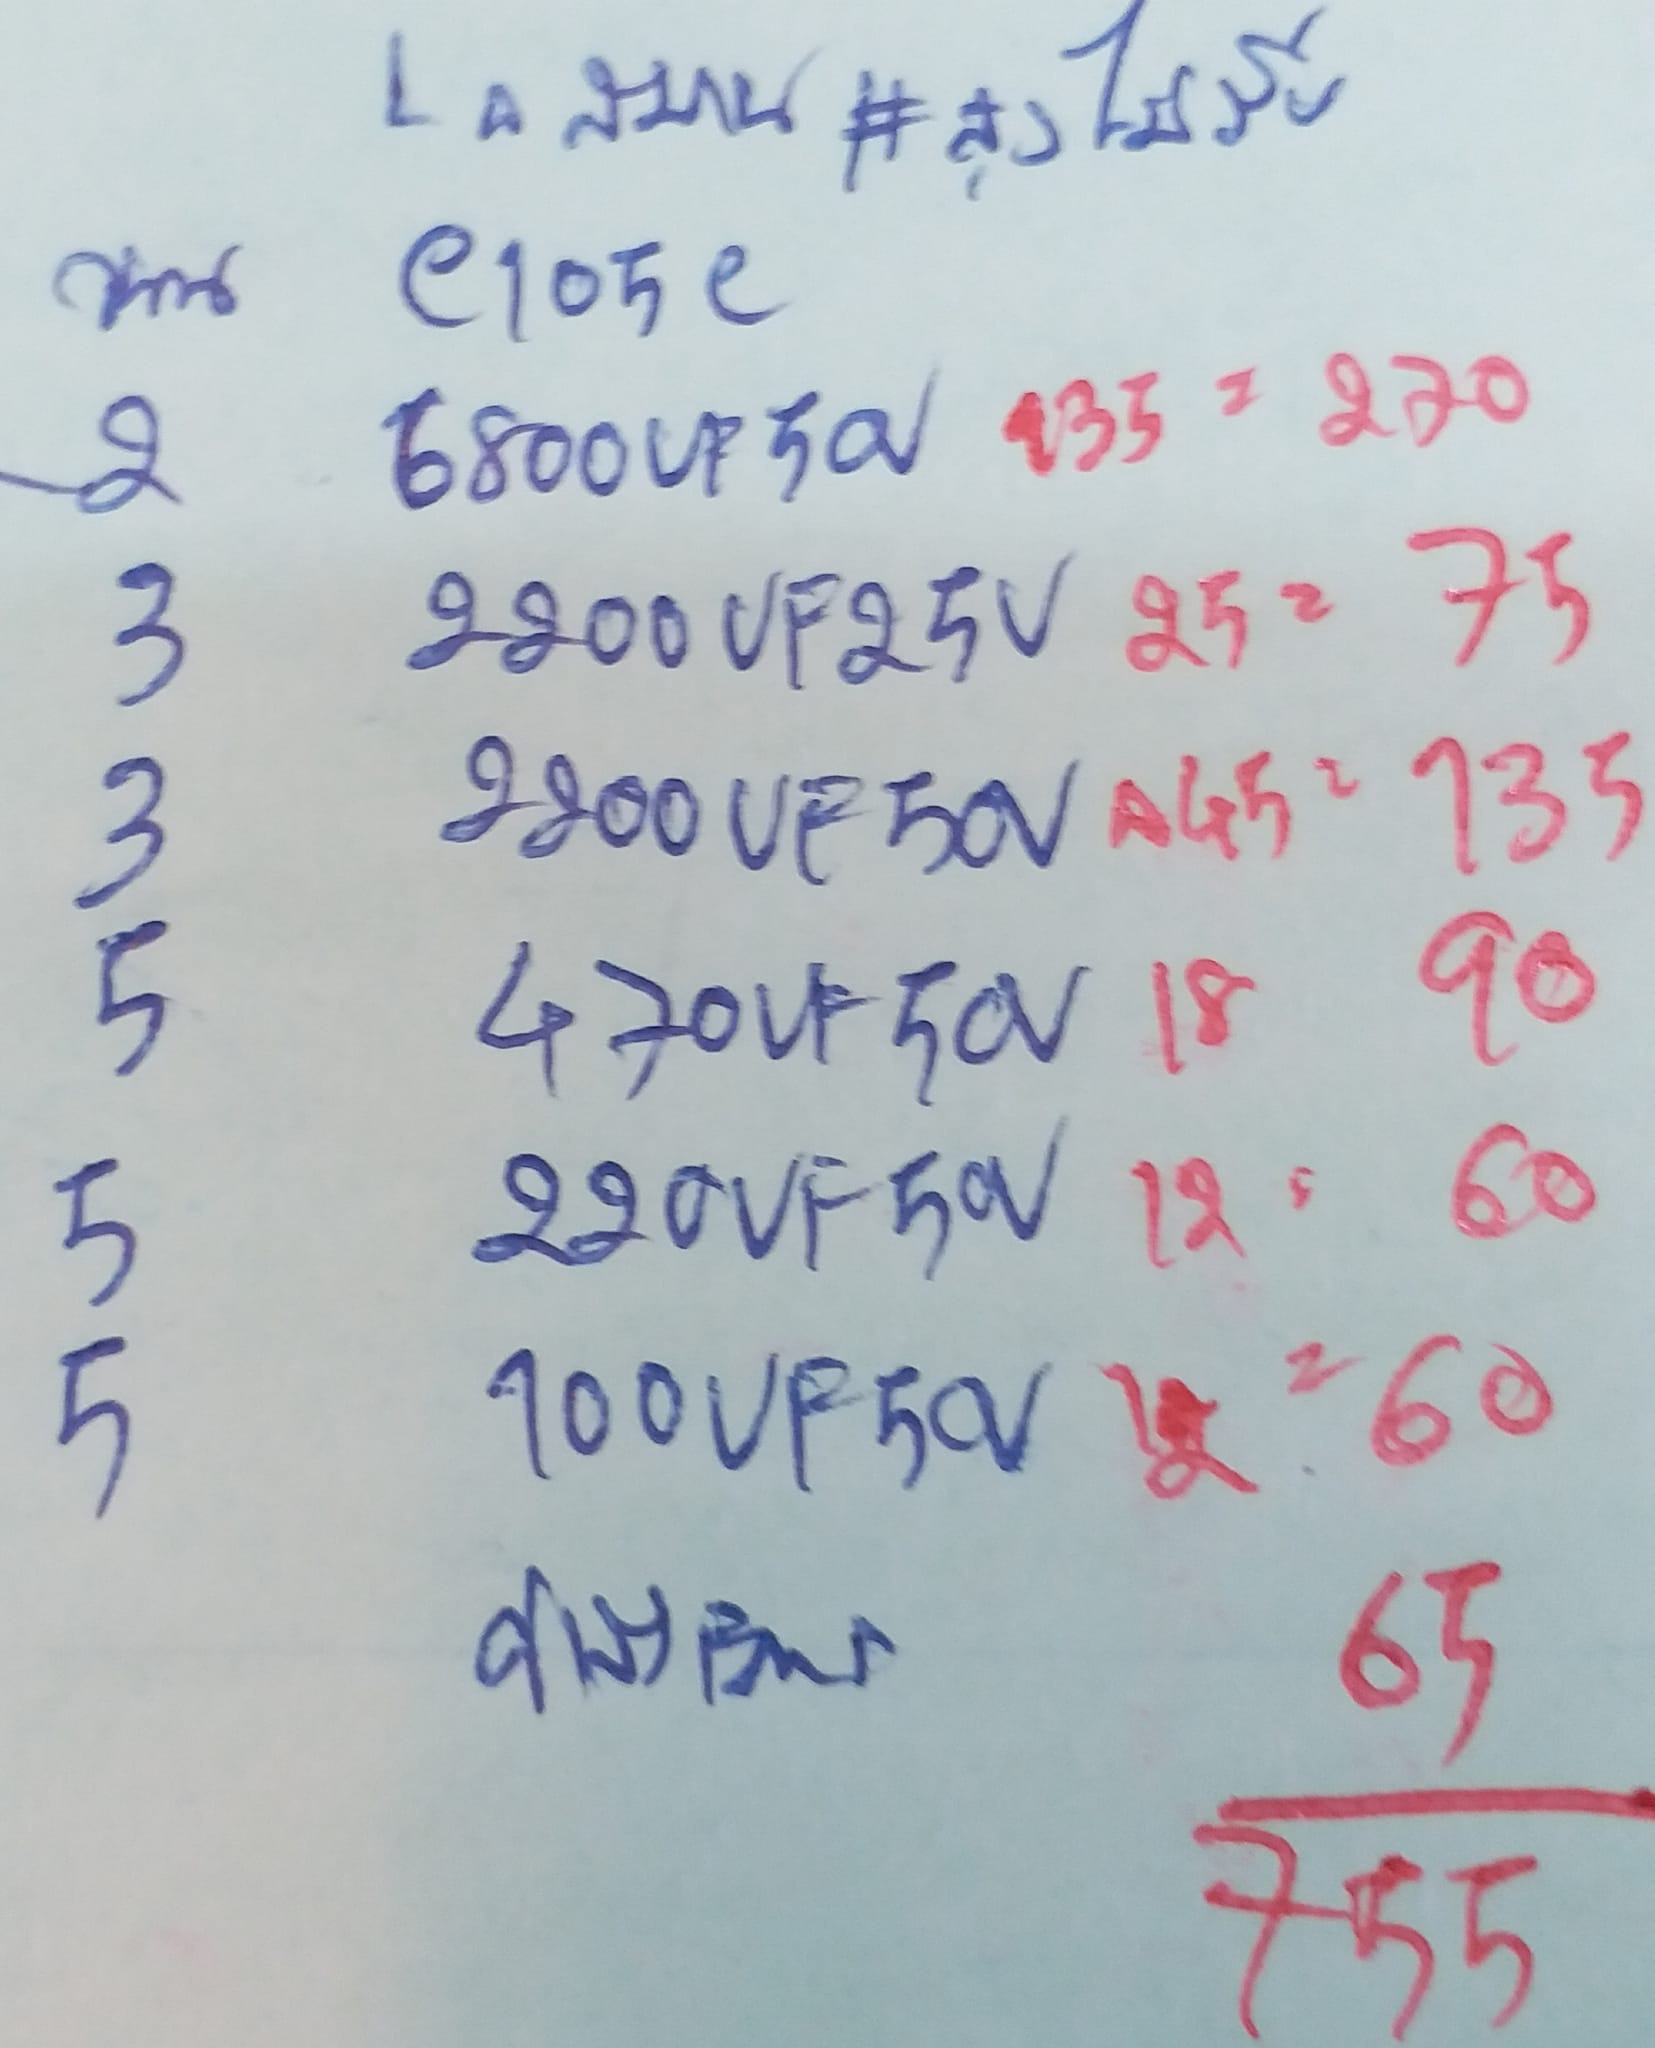 LA สนาน # สุงไมรีบ
C105C
2 6800UF50V 135 = 270
3 2200UF25V 25 = 75
3 2200UF50V 45 = 135
5 470UF50V 18 90
5 220UF50V 12 = 60
5 100UF50V 12 = 60
65
755